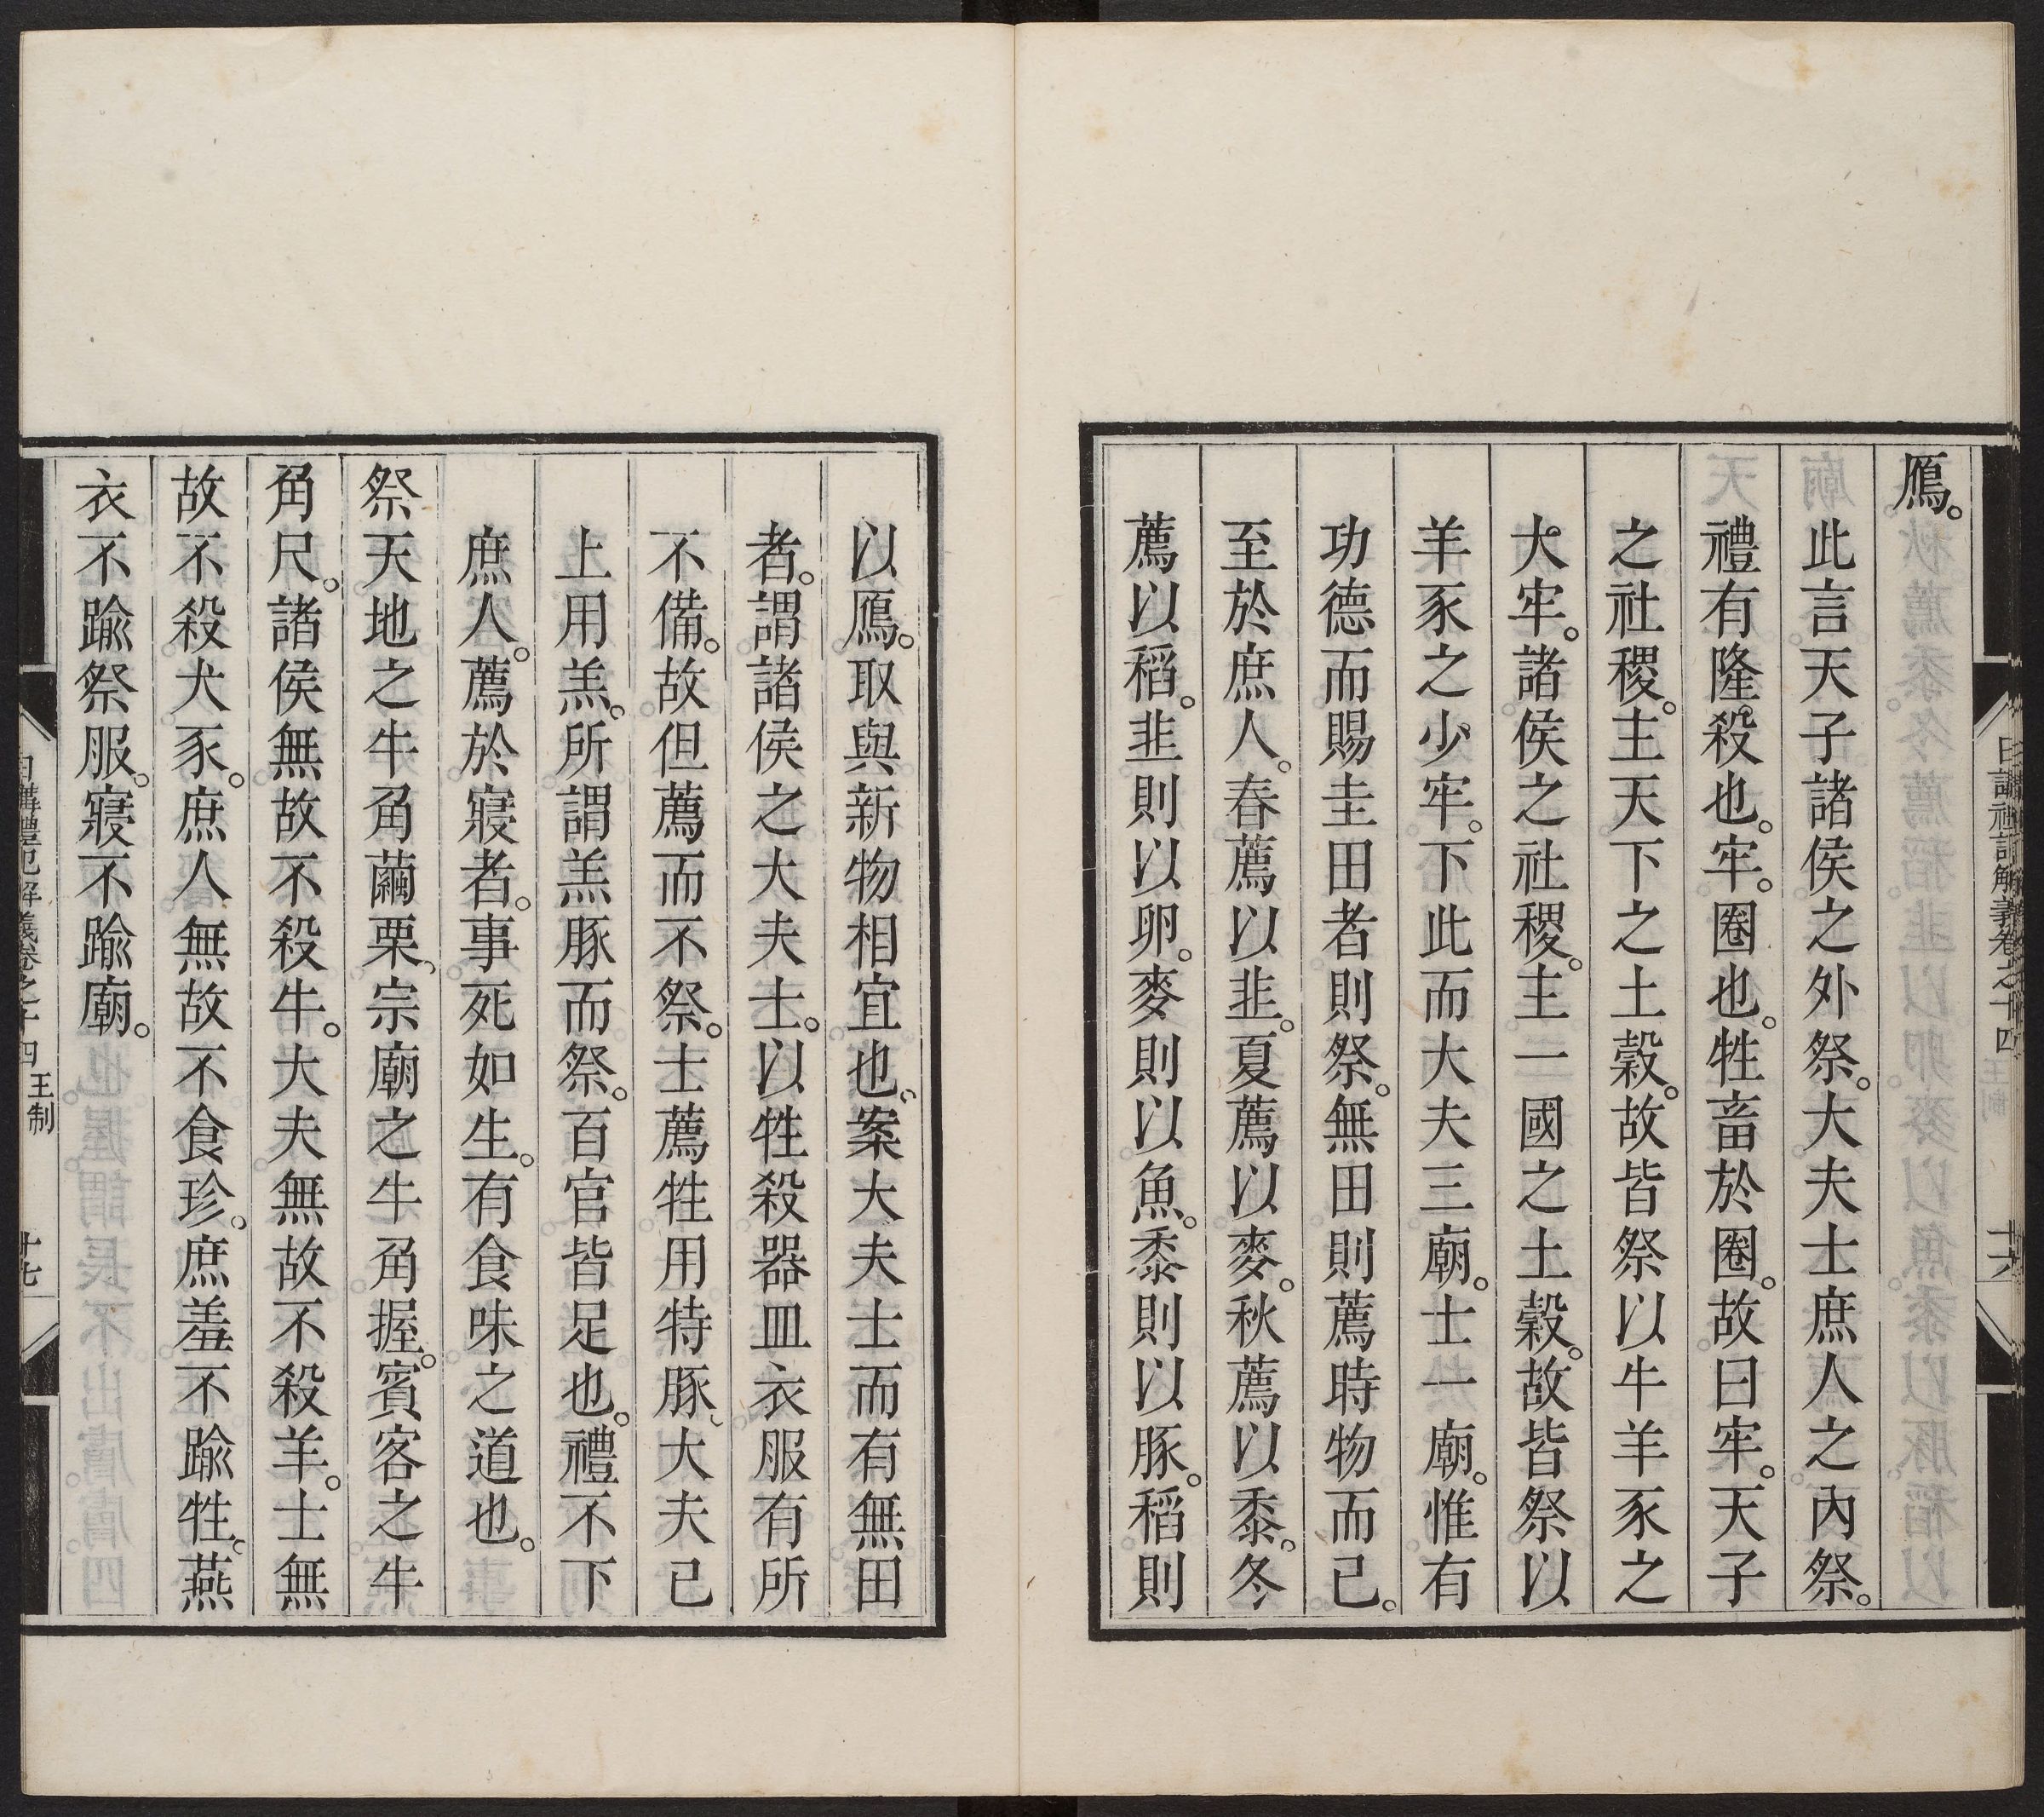 鴈。
此言天子諸侯之外祭。大夫士庶人之內祭。
禮有隆殺也。牢。圈也。牲畜於圈。故曰牢。天子
之社稷。主天下之土穀。故皆祭以牛羊豕之
大牢。諸侯之社稷。主一國之土穀。故皆祭以
羊豕之少牢。下此而大夫三廟。士一廟。惟有
功德而賜圭田者則祭。無田則薦時物而已。
至於庶人。春薦以韭。夏薦以麥。秋薦以黍。冬
薦以稻。韭則以卵。麥則以魚。黍則以豚。稻則
日講禮記解義卷之十四
十六
以鴈。取與新物相宜也。案大夫士而有無田
者。謂諸侯之大夫士。以牲殺器皿衣服有所
不備。故但薦而不祭。士薦牲用特豚、大夫已
上用羔。所謂羔豚而祭。百官皆足也。禮不下
庶人。薦於寢者。事死如生。有食味之道也。
祭天地之牛角繭栗、宗廟之牛角握。賓客之牛
角尺。諸侯無故不殺牛。大夫無故不殺羊。士無
故不殺犬豕。庶人無故不食珍。庶羞不踰牲。燕
衣不踰祭服。寢不踰廟。
日講禮記解義卷之十四 王制
十七